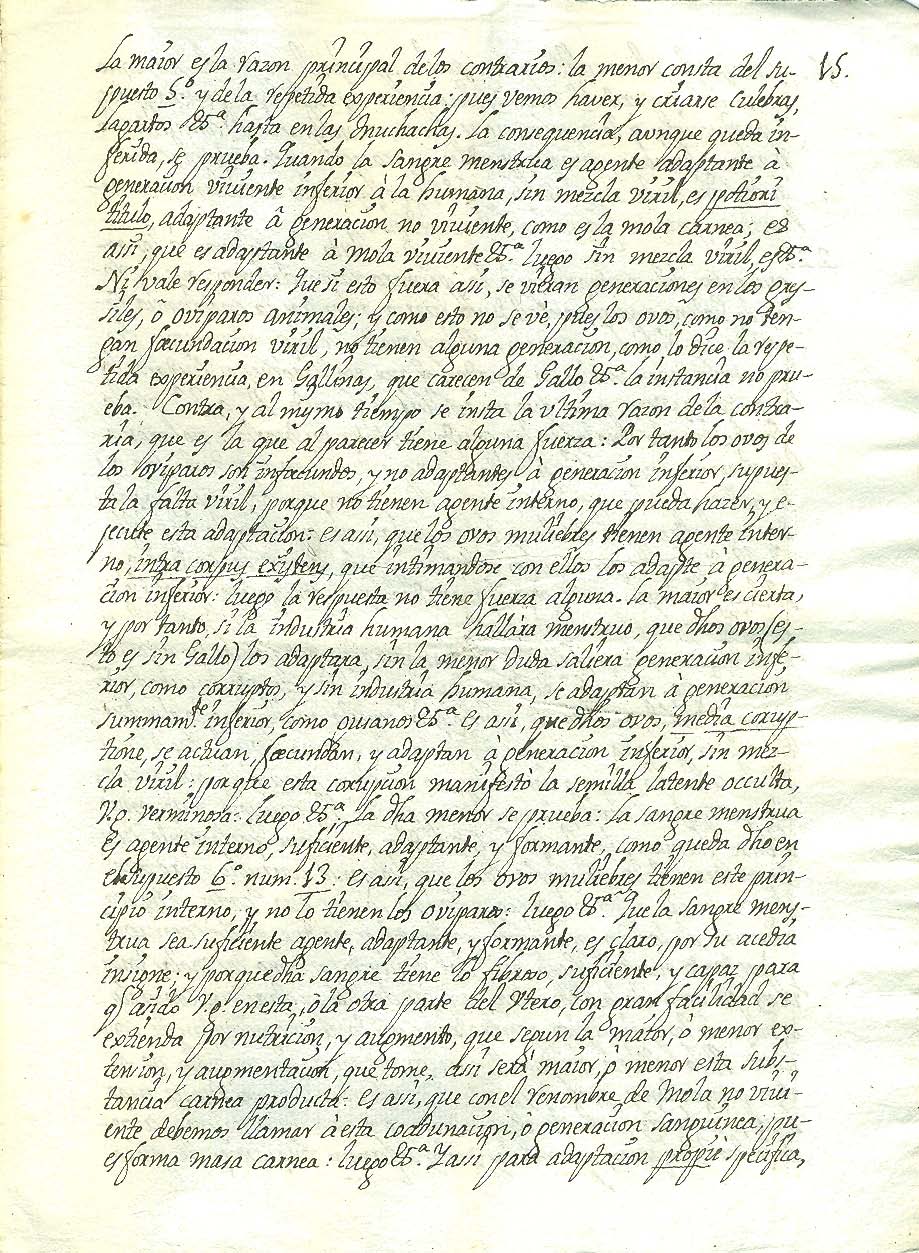 La maior es la razon principal de los contrarios: la menor consta del su- 15.
puesto 5.º y de la repetida experiencia: pues vemos haver, y criarse Culebras,
lagartos &ª. hasta en las muchachas. La consequencia, aunque queda in-
ferida, se prueba. Quando la sangre menstrua es agente adaptante à
generacion viviente inferior à la humana, sin mezcla viril, es potiori
titulo, adaptante â generacion no viviente, como es la mola carnea; es
assi, que es adaptante à mola viviente &ª. luego sin mezcla viril, es &ª.
Ni vale responder: Que si esto fuera asi, se vieran generaciones en los
siles, ô oviparos animales; y como esto no se vè, pues los ovos, como no ten-
gan fœcundacion viril, no tienen alguna generacion, como lo dice la repe-
tida experiencia, en Gallinas, que carecen de Gallo &ª. la instancia no pru-
eba. Contra, y al mysmo tiempo se insta la ultima razon de la contra-
ria, que es la que al parecer tiene alguna fuerza: Por tanto los ovos de
los oviparos son infæcundos, y no adaptantes à generacion inferior, supues-
ta la falta viril, porque no tienen agente interno, que pueda hazer, y e-
jecute esta adaptacion: es assi, que los ovos muliebres tienen agente inter-
no, intra corpus existens, que intimandose con ellos los adapte à genera-
cion inferior: luego la respuesta no tiene fuerza alguna. La maior es cierta,
y por tanto, si la industria humana hallàra menstruo, que dhos ovos (es-
to es sin Gallo) los adaptara, sin la menor duda saliera generacion infe-
rior, como corruptos, y sin industria humana, se adaptan à generacion
summamte. inferior, como gusanos &ª. Es assi, que dhos ovos, media corrup-
tione, se actuan, fœcundan, y adaptan à generacion inferior, sin mez-
cla viril: porque esta corrupcion manifestò la semilla latente occulta,
V.g. verminosa: luego &ª. La dha menor se prueba: La sangre menstrua
es agente interno, suficiente, adaptante, y formante, como queda dho en
el supuesto 6º. num. 13. es asi, que los ovos muliebres tienen este prin-
cipio interno, y no lo tienen los oviparos: luego &ª. Que la sangre mens-
trua sea suficiente agente, adaptante, y formante, es claro, por su acedia
insigne; y porque dha sangre tiene lo fibroso, suficiente, y capaz para
q asido V.g. en esta, ô la otra parte del Utero, con gran facilidad se
extienda por nutricion, y augmento, que segun la maior, ò menor ex-
tension, y augmentacion, que tome, asi serà maior, ò menor esta subs-
tancia carnea producta: es asi, que con el renombre de Mola no vivi-
ente debemos llamar à esta coadunacion, ò generacion sanguinea, pu-
es forma masa carnea: luego &ª. Y assi para adaptacion propriè specifica,